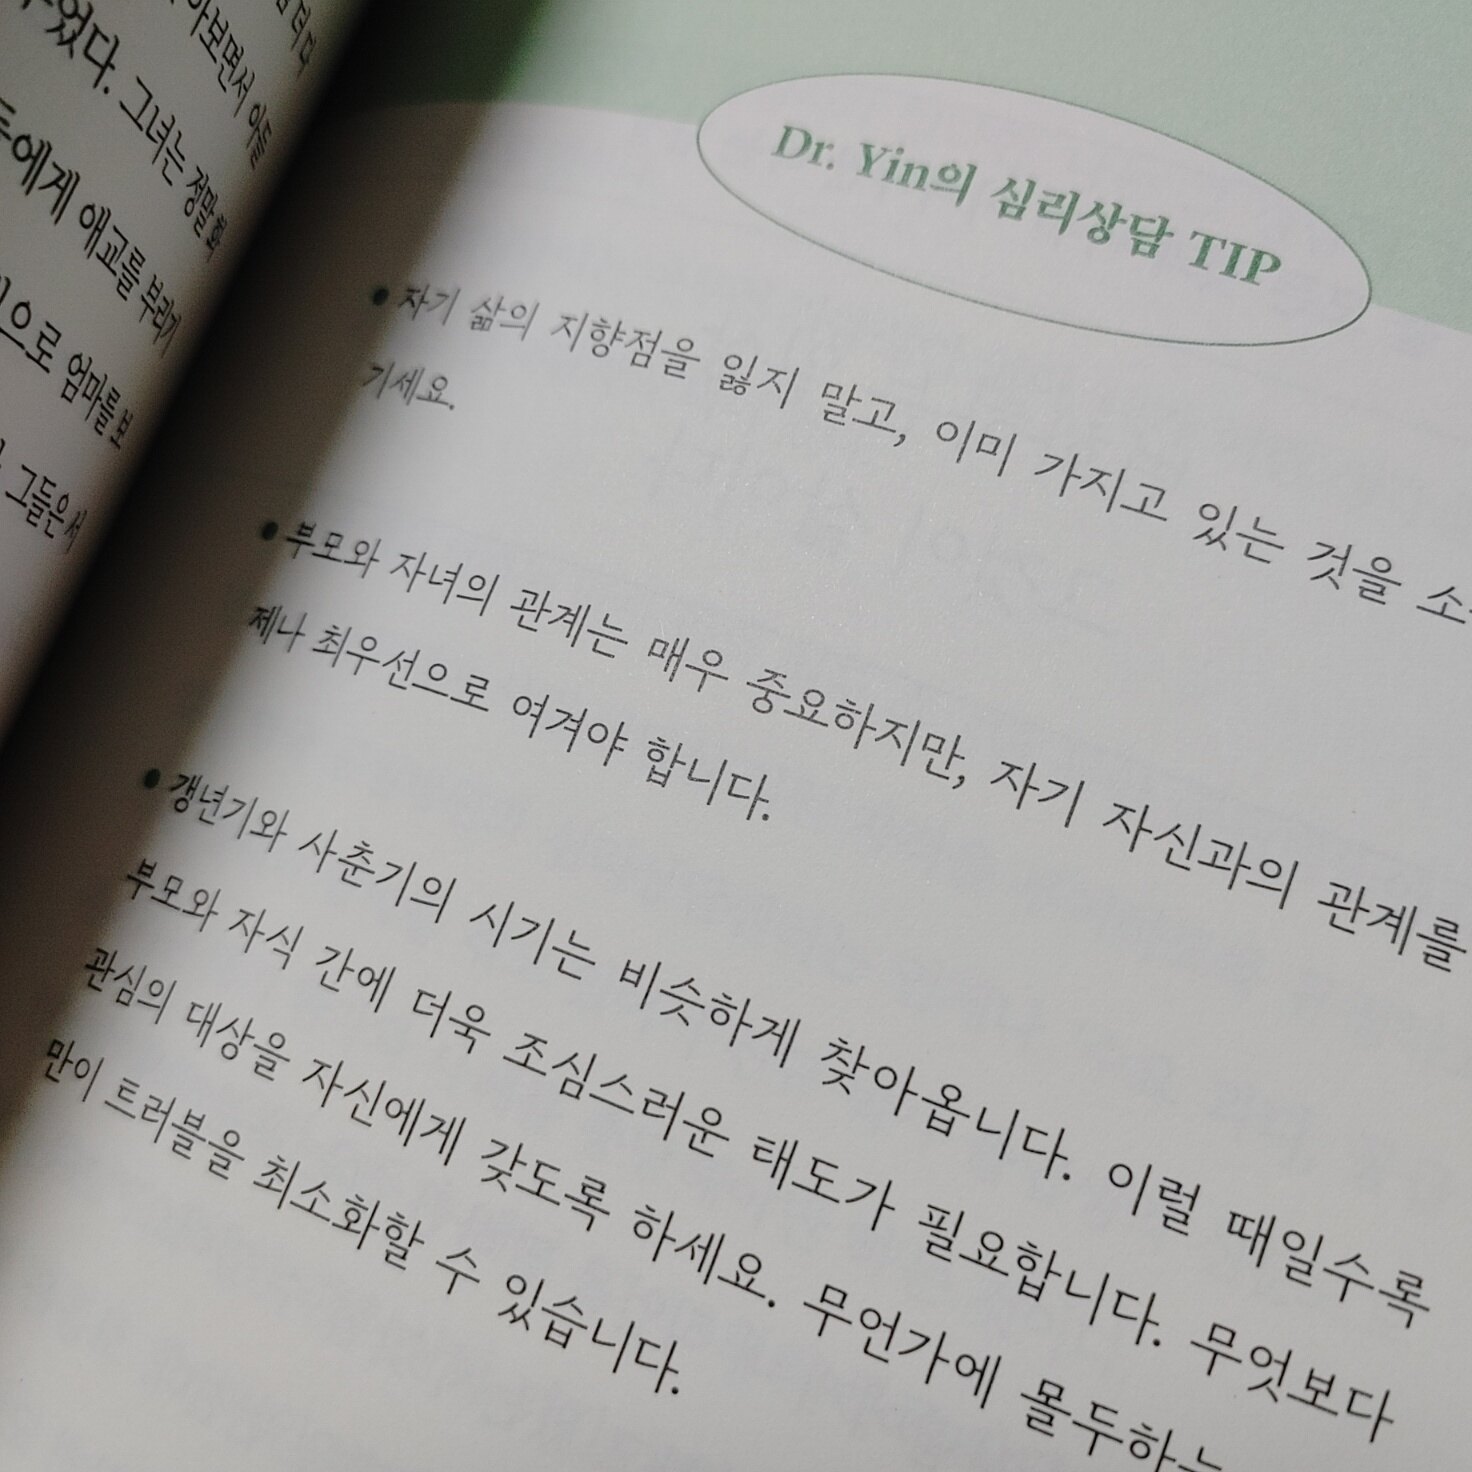 다. 그녀는 정말
에게 애교를 부리기
으로 엄마를 보
그들은 서
Dr. Yin의 심리상담 TIP
● 자기 삶의 지향점을 잃지 말고, 이미 가지고 있는 것을
기세요.
● 부모와 자녀의 관계는 매우 중요하지만, 자기 자신과의 관계를
제나 최우선으로 여겨야 합니다.
● 갱년기와 사춘기의 시기는 비슷하게 찾아옵니다. 이럴 때일수록
부모와 자식 간에 더욱 조심스러운 태도가 필요합니다. 무엇보다
관심의 대상을 자신에게 갖도록 하세요. 무언가에 몰두하는
만이 트러블을 최소화할 수 있습니다.